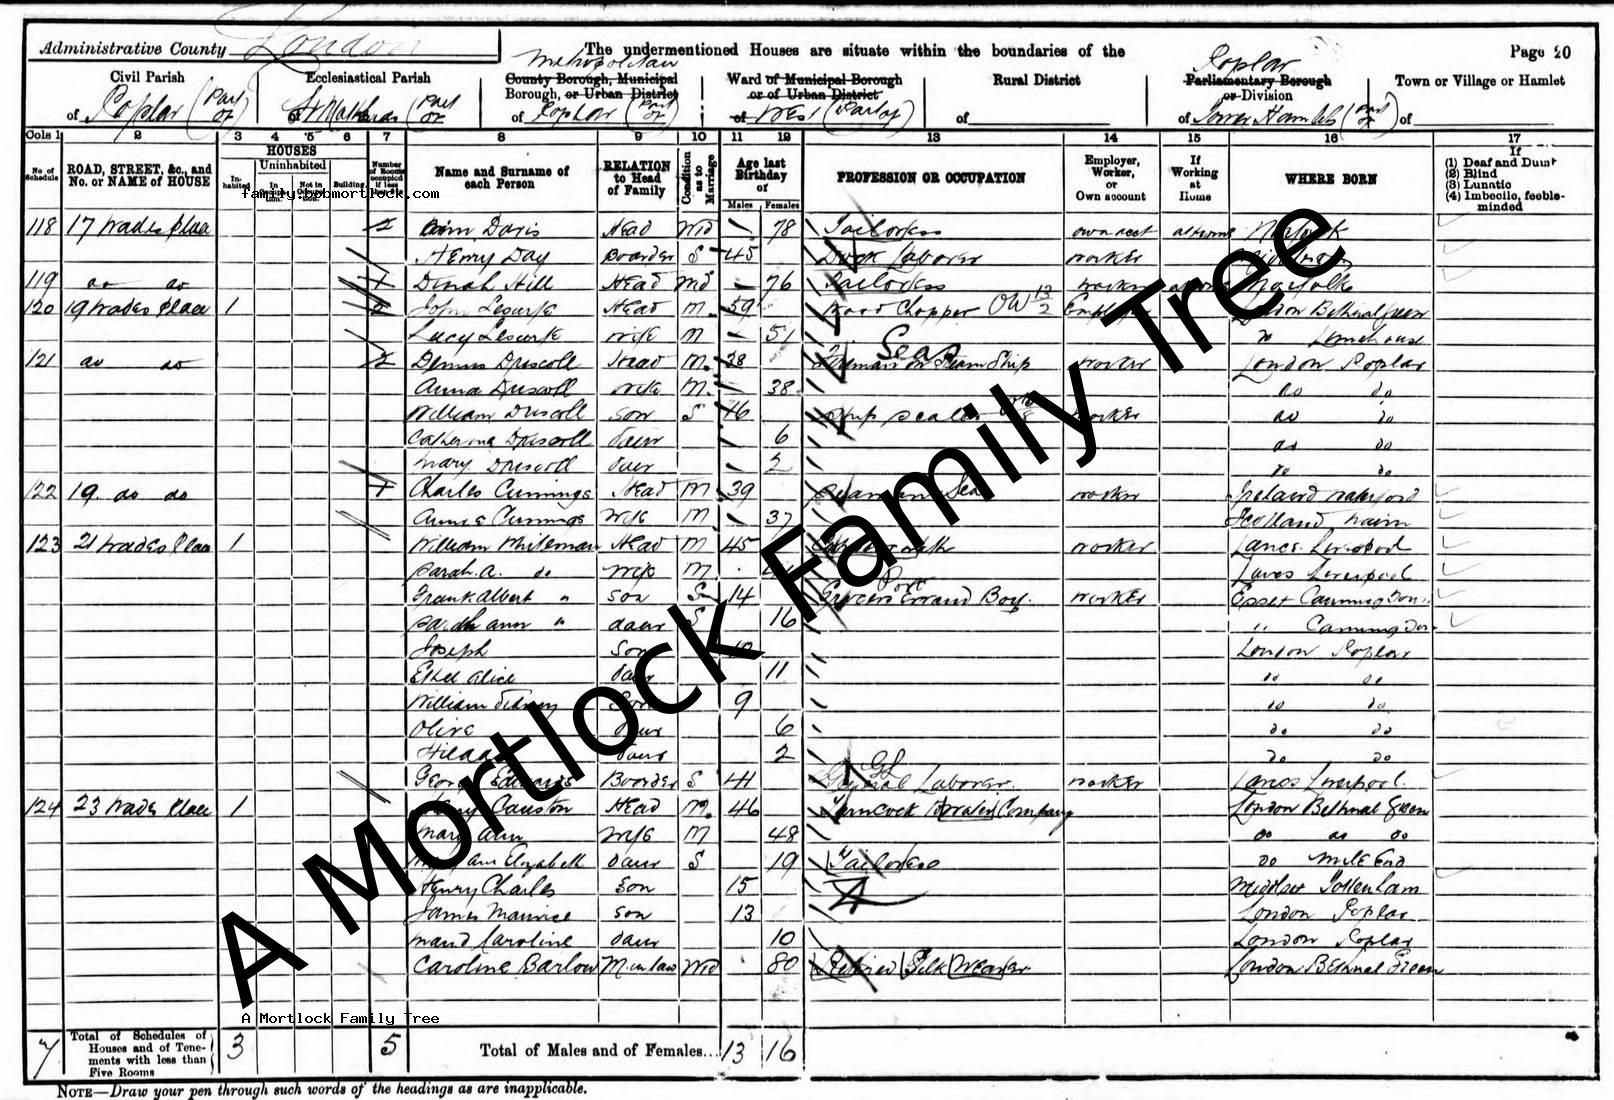 Administrative County London
The undermentioned Houses are situate within the boundaries of the
Page 20
Civil Parish
of Poplar (Part of)
Ecclesiastical Parish
of St Matthias (Part of
Metropolitan
County Borough, Municipal
Borough, or Urban District
of Poplar (Part of)
Ward of Municipal Borough
or of Urban District
of West (Part of)
Rural District
of
Poplar
Parliamentary Borough
or Division
of Tower Hamlets (Part of)
Town or Village or Hamlet
of
Cols 1 2 3 4 5 6 7 8 9 10 11 12 13 14 15 16 17
No. of Schedule
ROAD, STREET, &c., and No. or NAME of HOUSE
HOUSES
Inhabited
Uninhabited
In Occupation.
Not in Occupation.
Building.
Number of Rooms occupied if less than five
Name and Surname of each Person
RELATION to Head of Family
Condition as to Marriage
Age last Birthday of
Males Females
PROFESSION OR OCCUPATION
Employer, Worker, or Own account
If Working at Home
WHERE BORN
If
(1) Deaf and Dumb
(2) Blind
(3) Lunatic
(4) Imbecile, feeble-minded
family.bobmortlock.com
118 17 Wades Place 2 Davis Head Wid 78 Tailoress own acct at home
Henry Day Boarder S 45 Dock Laborer worker
119 do do 1 Dinah Hill Head Wid 76 Tailoress worker Norfolk
120 19 Wades Place 1 2 John Head M. 59 Wood Chopper London Bethnal Green
Lucy wife M 51 do Limehouse
121 do do 2 Dennis Driscoll Head M. 38 Fireman on Steam Ship Seas worker London Poplar
Anna Driscoll wife M. 38 do do
William Driscoll Son S 16 Ship worker do do
Catherine Driscoll Daur 6 do do
Mary Driscoll Daur 2 do do
122 19 do do 1 Charles Cummings Head M 39 Seaman Sea worker Ireland Waterford
Cummings wife M 37 Scotland Nairn
123 21 Wades Place 1 William Head M 45 worker Lancs. Liverpool
Sarah. A. do wife M Lancs Liverpool
Frank Albert " Son S 14 Grocers Errand Boy. worker Essex Canning Town
Sarah ann " daur S 16 " Canning Town
Joseph Son London Poplar
Ethel Alice Daur 11 do do
William Sidney Son 9 do do
Olive Daur 6 do do
Hilda Daur 2 do do
George Edwards Boarder S 41 General Laborer. worker Lancs Liverpool.
124 23 Wades Place 1 Causton Head M. 46 Company London Bethnal Green
Mary Ann wife M 48 do do do
Elizabeth Daur S 19 Tailoress do Mile End
Henry Charles Son 15 Middlsex Tottenham
James Maurice Son 13 London Poplar
Maud Caroline Daur 10 London Poplar
Caroline Barlow M in law Wid 80 Retired Silk Weaver London Bethnal Green
A Mortlock Family Tree
A Mortlock Family Tree
7 Total of Schedules of Houses and of Tenements with less than Five Rooms 3 5 Total of Males and of Females... 13 16
NOTE—Draw your pen through such words of the headings as are inapplicable.